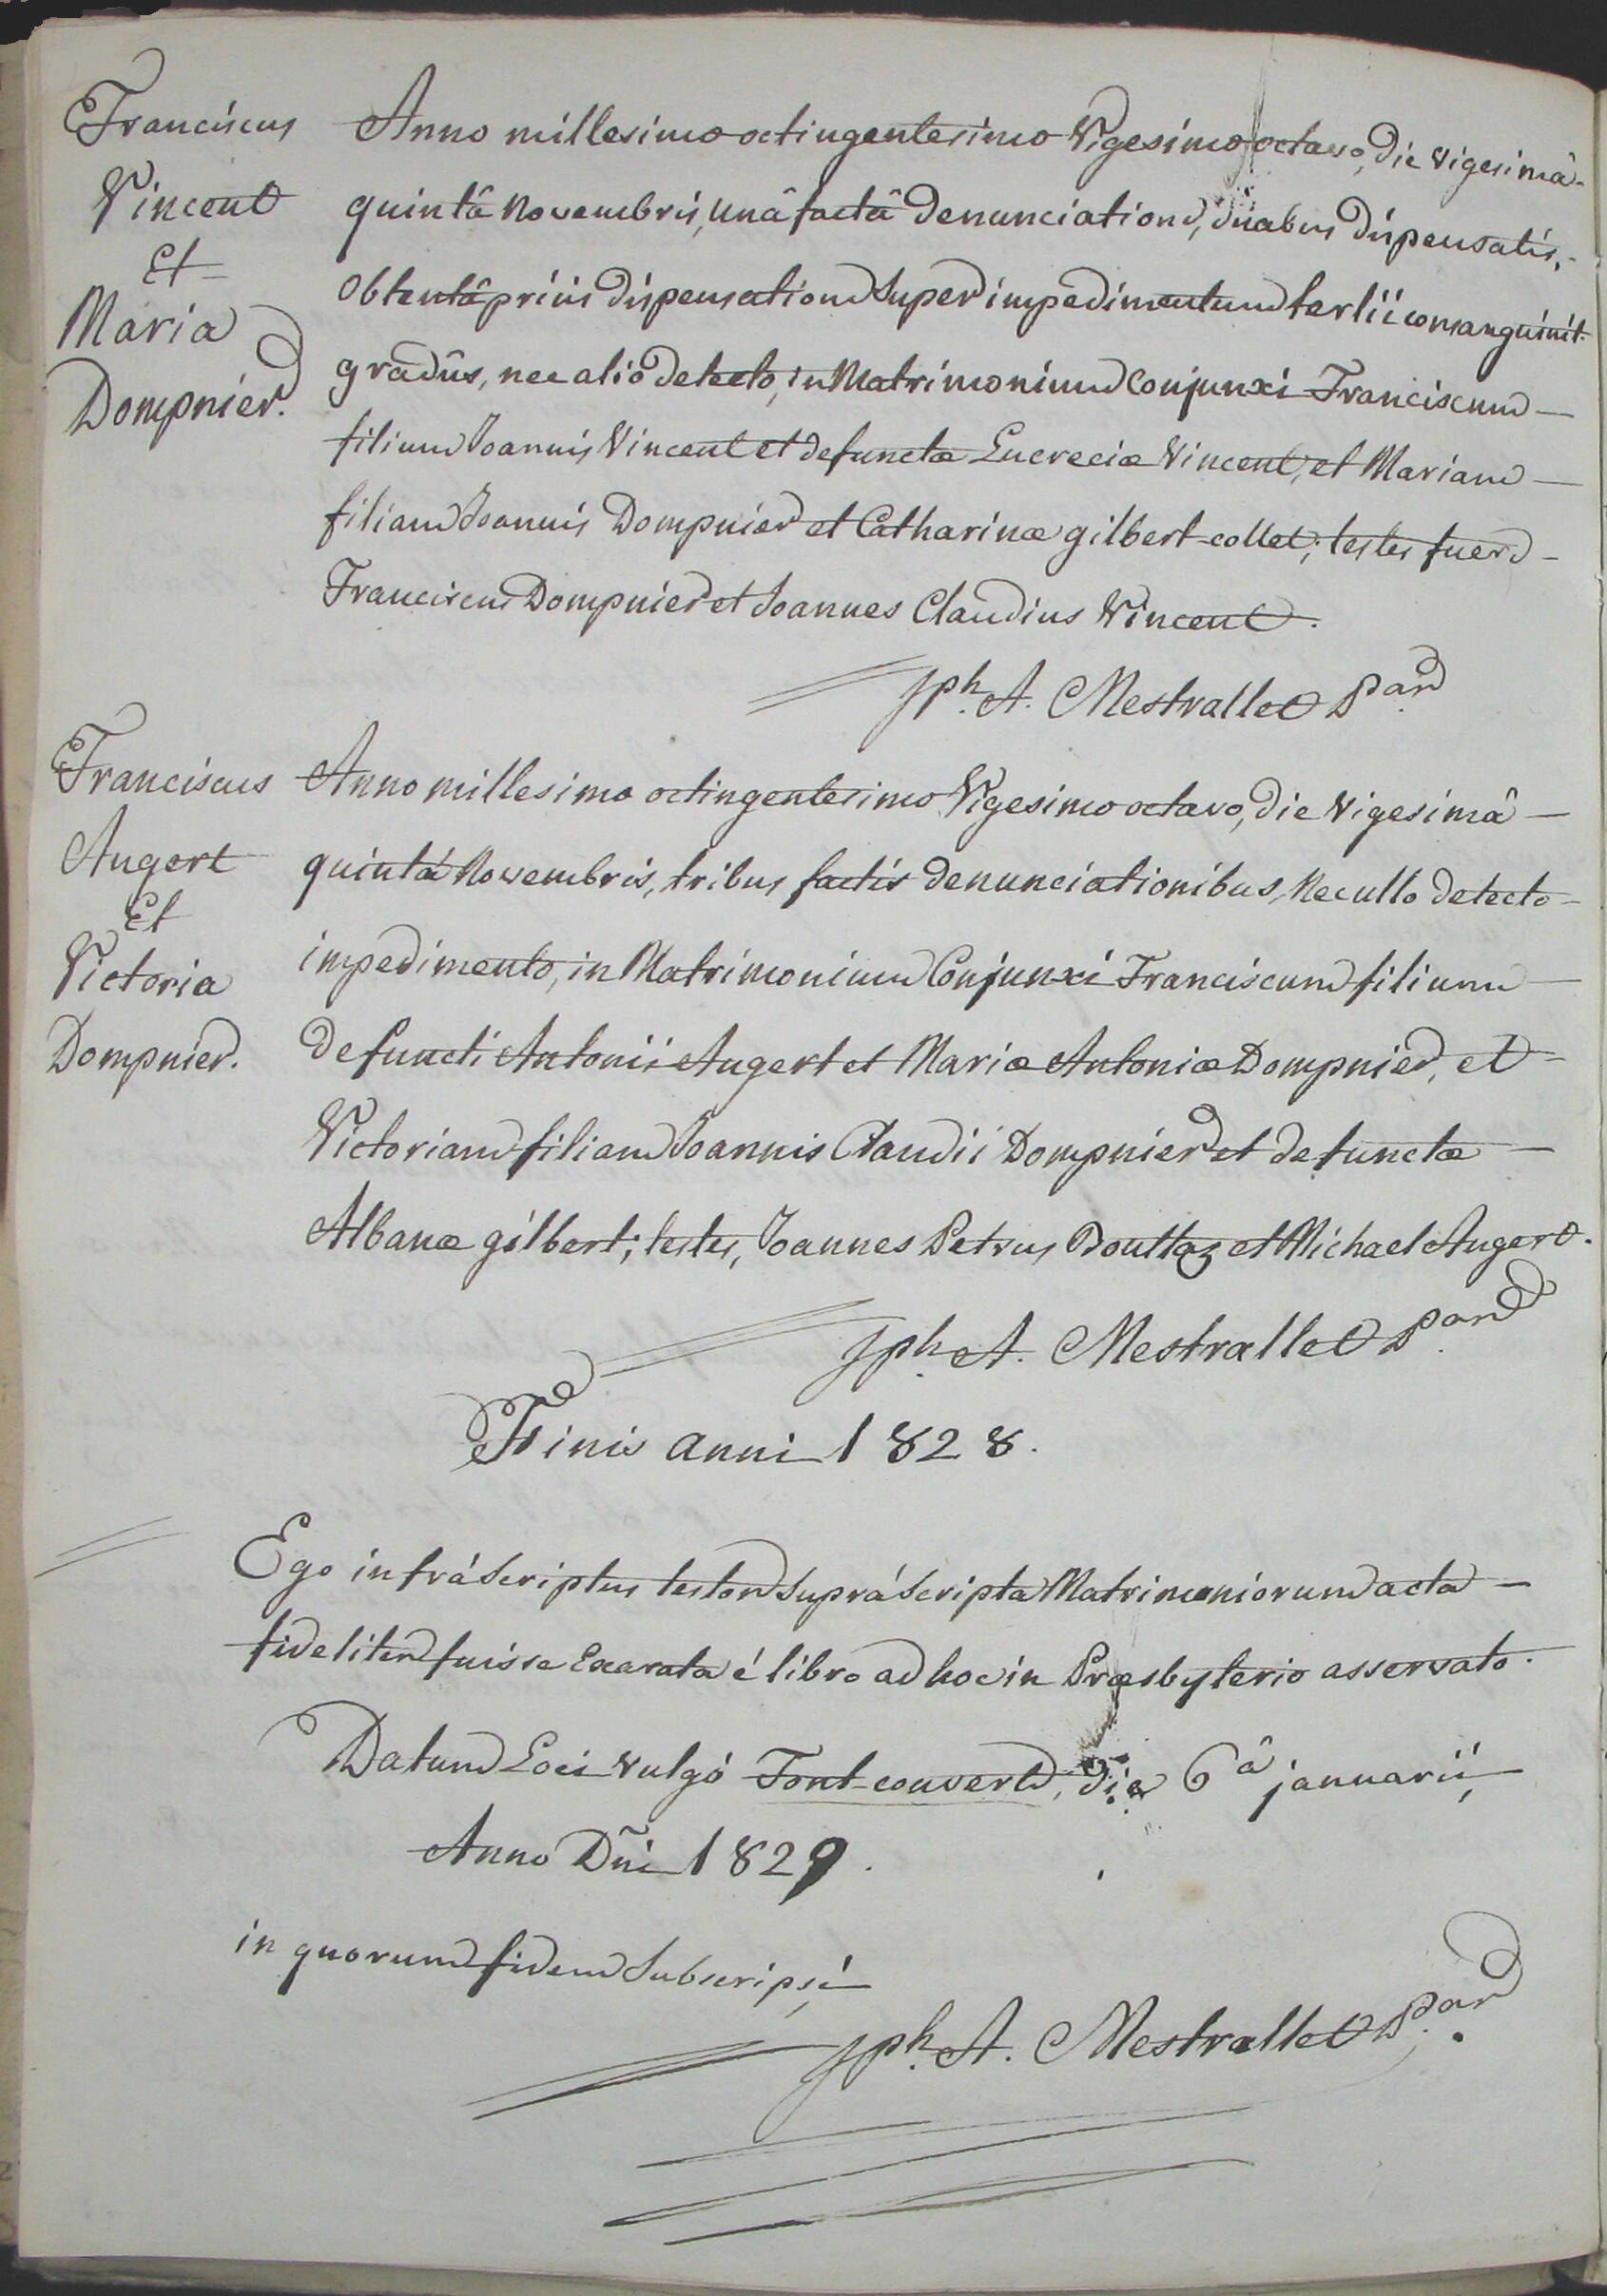 Franciscus
Vincent
Et
Maria
Dompnier.
Anno millesimo octingentesimo Vigesimo octavo, die vigesimâ-
quintâ Novembris, unâ factâ denunciatione, duabus dispensatis,-
obtentâ priùs dispensatione super impedimentum tertii consanguinit.
gradûs, nec alio detecto, in Matrimonium Conjunxi Franciscum —
filium Joannis Vincent et defunctæ Lucreciæ Vincent, et Mariam —
filiam Joannis Dompnier et Catharinæ gilbert-collet; testes fuere -
Franciscus Dompnier et Joannes Claudius Vincent.
Jph. A. Mestrallet P.ar
Franciscus
Augert
Et
Victoria
Dompnier.
Anno millesimo octingentesimo Vigesimo octavo, die vigesimâ —
quintá Novembris, tribus factis denunciationibus, Nec ullo detecto -
impedimento, in Matrimonium Conjunxi Franciscum filium —
defuncti Antonii Augert et Mariæ Antoniæ Dompnier, et -
Victoriam filiam Joannis Claudii Dompnier et defunctæ —
Albanæ gilbert; testes, Joannes Petrus Bouttaz et Michael Augert.
Jph. A. Mestrallet P.ar
Finis anni 1828.
Ego infrá Scriptus testor suprá Scripta Matrimoniorum acta —
fideliter fuisse Exarata é libro ad hoc in Præsbyterio asservato.
Datum Loci vulgó Font-couverte, die 6â januarii,
Anno Dñi 1829.
in quorum fidem Subscripsi
Jph. A. Mestrallet P.ar